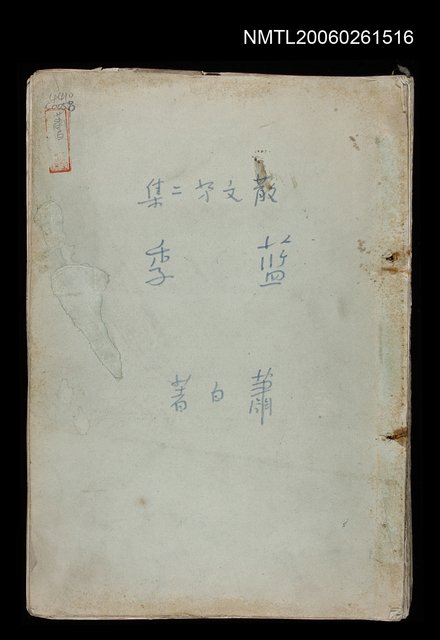 NMTL20060261516
散文第二集
藍季
蕭白著